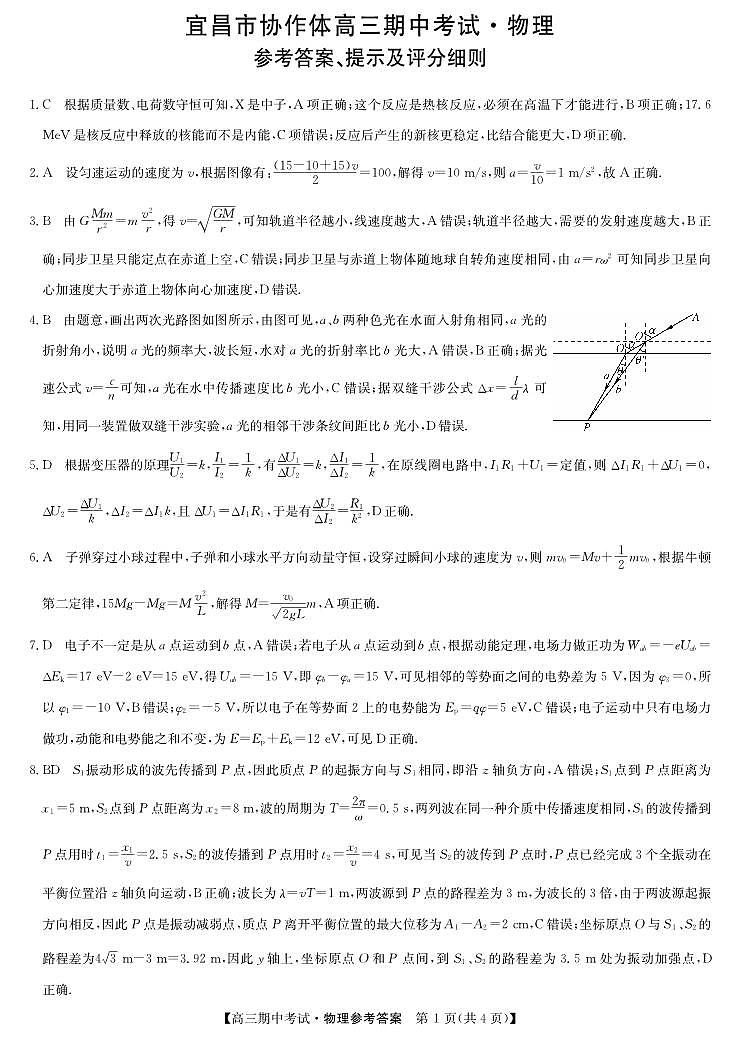 宜昌市协作体高三期中考试·物理
参考答案、提示及评分细则
1.C 根据质量数、电荷数守恒可知,X是中子,A项正确;这个反应是热核反应,必须在高温下才能进行,B项正确;17.6
MeV是核反应中释放的核能而不是内能,C项错误;反应后产生的新核更稳定,比结合能更大,D项正确.
2.A 设匀速运动的速度为v,根据图像有:(15-10+15)v/2=100,解得v=10 m/s,则a=v/10=1 m/s²,故A正确.
3.B 由G Mm/r²=m v²/r,得v=√(GM/r),可知轨道半径越小,线速度越大,A错误;轨道半径越大,需要的发射速度越大,B正
确;同步卫星只能定点在赤道上空,C错误;同步卫星与赤道上物体随地球自转角速度相同,由a=rω²可知同步卫星向
心加速度大于赤道上物体向心加速度,D错误.
4.B 由题意,画出两次光路图如图所示,由图可见,a、b两种色光在水面入射角相同,a光的
折射角小,说明a光的频率大,波长短,水对a光的折射率比b光大,A错误,B正确;据光
速公式v=c/n可知,a光在水中传播速度比b光小,C错误;据双缝干涉公式Δx=l/d λ可
知,用同一装置做双缝干涉实验,a光的相邻干涉条纹间距比b光小,D错误.
A
α
O′
O
θ′
a
b
P
5.D 根据变压器的原理U₁/U₂=k,I₁/I₂=1/k,有ΔU₁/ΔU₂=k,ΔI₁/ΔI₂=1/k,在原线圈电路中,I₁R₁+U₁=定值,则ΔI₁R₁+ΔU₁=0,
ΔU₂=ΔU₁/k,ΔI₂=ΔI₁k,且ΔU₁=ΔI₁R₁,于是有ΔU₂/ΔI₂=R₁/k²,D正确.
6.A 子弹穿过小球过程中,子弹和小球水平方向动量守恒,设穿过瞬间小球的速度为v,则mv₀=Mv+1/2 mv₀,根据牛顿
第二定律,15Mg-Mg=M v²/L,解得M=v₀/√(2gL) m,A项正确.
7.D 电子不一定是从a点运动到b点,A错误;若电子从a点运动到b点,根据动能定理,电场力做正功为Wab=-eUab=
ΔEk=17 eV-2 eV=15 eV,得Uab=-15 V,即φb-φa=15 V,可见相邻的等势面之间的电势差为5 V,因为φ₃=0,所
以φ₁=-10 V,B错误;φ₂=-5 V,所以电子在等势面2上的电势能为Ep=qφ=5 eV,C错误;电子运动中只有电场力
做功,动能和电势能之和不变,为E=Ep+Ek=12 eV,可见D正确.
8.BD S₁振动形成的波先传播到P点,因此质点P的起振方向与S₁相同,即沿z轴负方向,A错误;S₁点到P点距离为
x₁=5 m,S₂点到P点距离为x₂=8 m,波的周期为T=2π/ω=0.5 s,两列波在同一种介质中传播速度相同,S₁的波传播到
P点用时t₁=x₁/v=2.5 s,S₂的波传播到P点用时t₂=x₂/v=4 s,可见当S₂的波传到P点时,P点已经完成3个全振动在
平衡位置沿z轴负向运动,B正确;波长为λ=vT=1 m,两波源到P点的路程差为3 m,为波长的3倍,由于两波源起振
方向相反,因此P点是振动减弱点,质点P离开平衡位置的最大位移为A₁-A₂=2 cm,C错误;坐标原点O与S₁、S₂的
路程差为4√3 m-3 m=3.92 m,因此y轴上,坐标原点O和P点间,到S₁、S₂的路程差为3.5 m处为振动加强点,D
正确.
【高三期中考试·物理参考答案 第1页(共4页)】